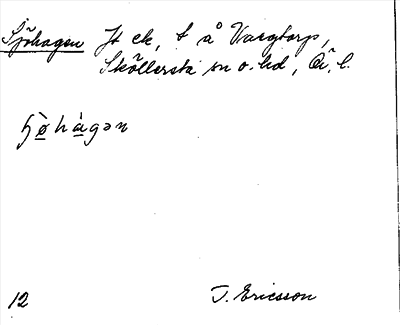 Sjöhagen Jt ek, t å Vargtorp,
Sköllersta sn o. hd, Ö. l.
ɧø̀hàgən
12
T. Ericsson